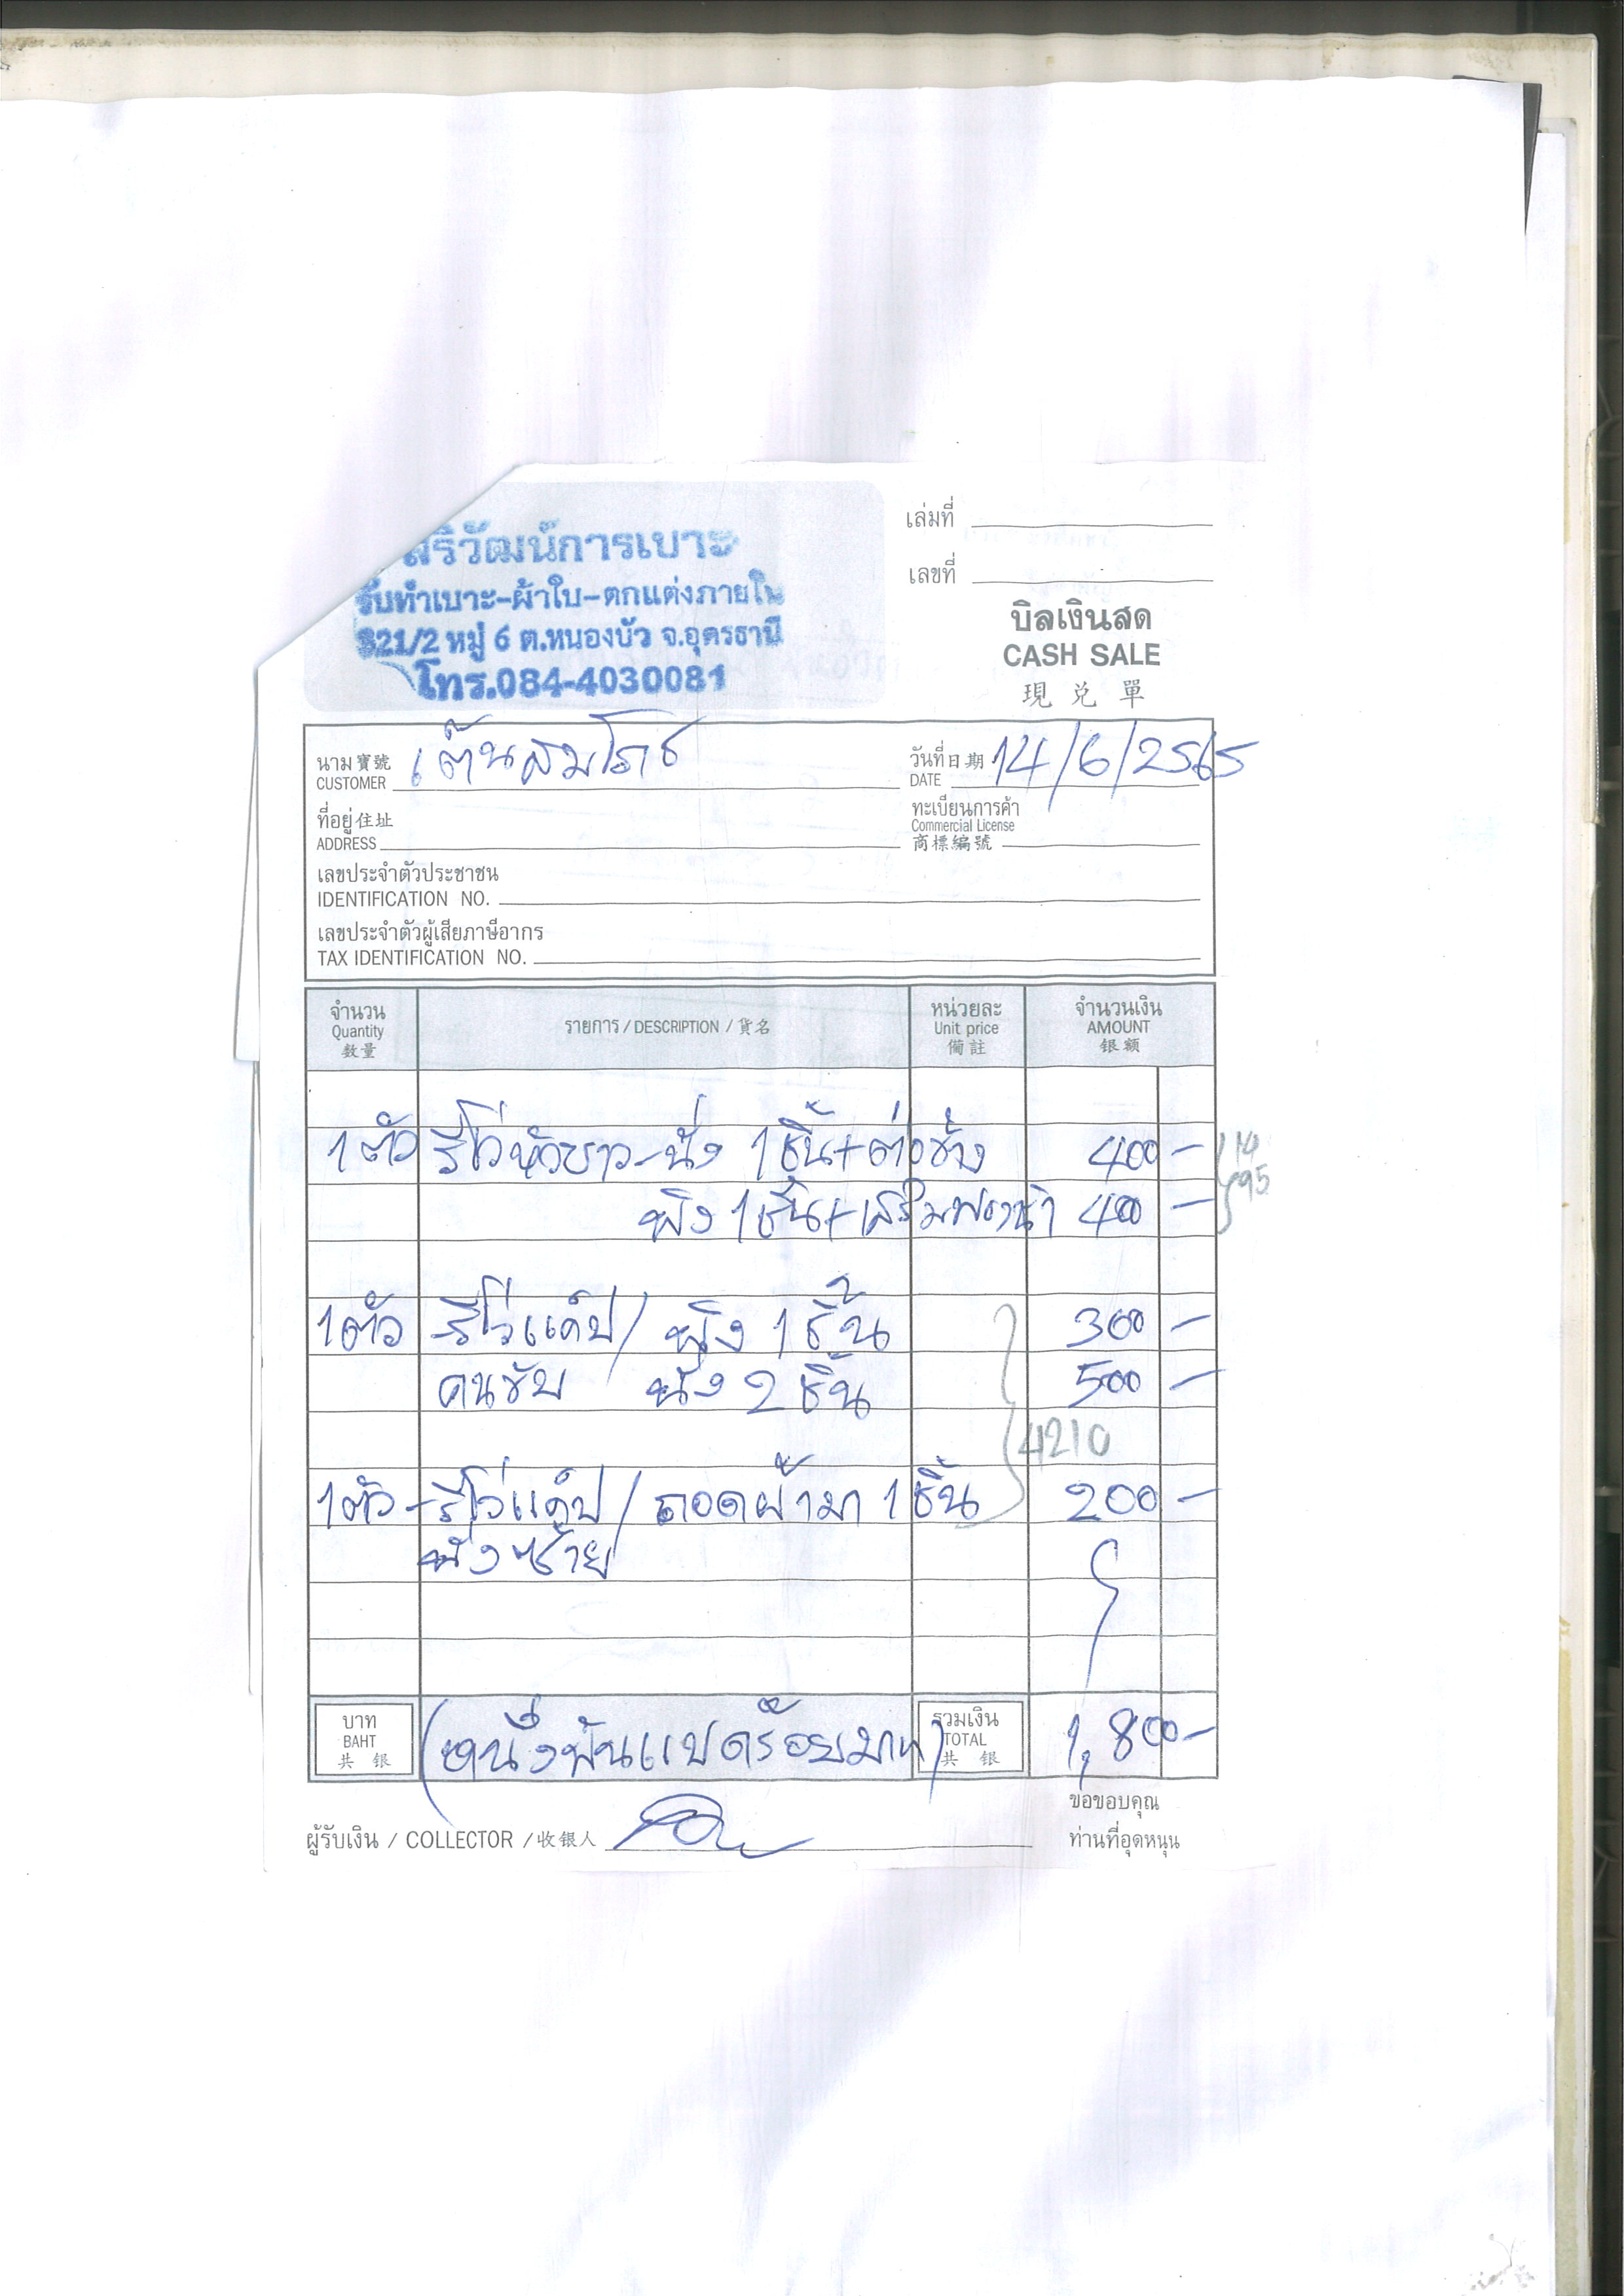 สิริวัฒน์การเบาะ
รับทำเบาะ-ผ้าใบ-ตกแต่งภายใน
321/2 หมู่ 6 ต.หนองบัว จ.อุดรธานี
โทร.084-4030081
เล่มที่
เลขที่
บิลเงินสด
CASH SALE
現兌單
นาม寶號 CUSTOMER เต๊นสมโภช
วันที่日期 DATE 14/6/2565
ที่อยู่住址 ADDRESS
ทะเบียนการค้า Commercial License 商標編號
เลขประจำตัวประชาชน
IDENTIFICATION NO.
เลขประจำตัวผู้เสียภาษีอากร
TAX IDENTIFICATION NO.
จำนวน Quantity 数量 รายการ / DESCRIPTION / 貨名 หน่วยละ Unit price 備註 จำนวนเงิน AMOUNT 银额
1ตัว รีโว่หัวขาว-นั่ง 1ชิ้น+ต่อข้าง 400 -
พิง 1ชิ้น+เสริมฟองน้ำ 400 -
95
1ตัว -รีโว่แค็ป/ พิง 1 ชิ้น 300 -
คนขับ นั่ง 2 ชิ้น 500 -
4210
1ตัว -รีโว่แค็ป/ ถอดผ้ามา 1 ชิ้น 200 -
นั่งซ้าย
บาท BAHT 共银 (หนึ่งพันแปดร้อยบาท) รวมเงิน TOTAL 共银 1,800-
ผู้รับเงิน / COLLECTOR / 收银人
ขอขอบคุณ
ท่านที่อุดหนุน